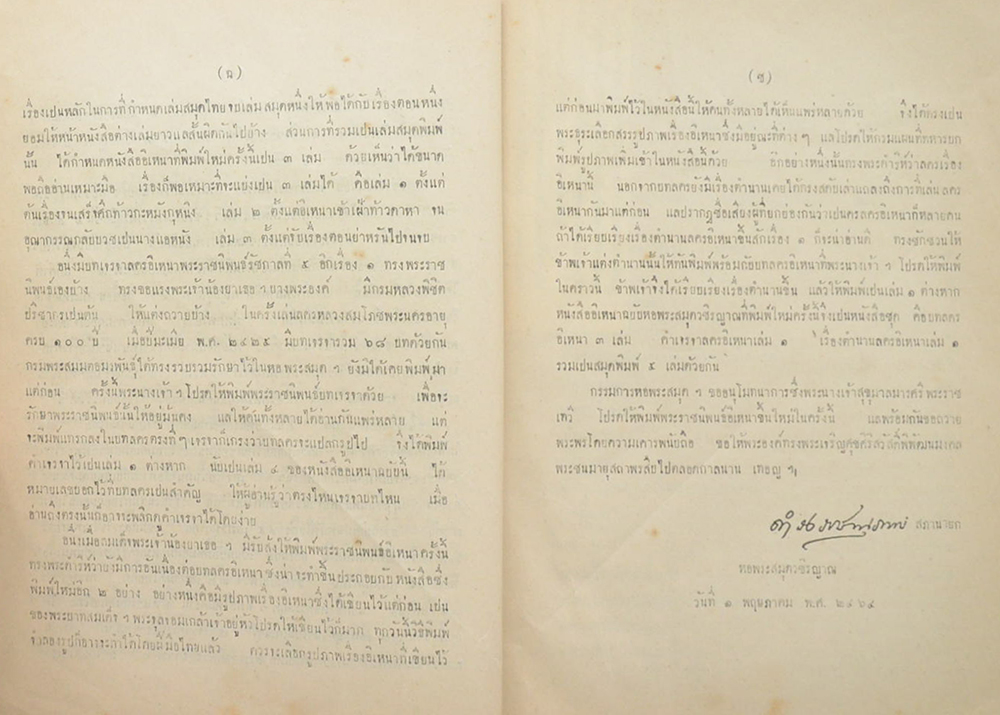 (ฉ)
เรื่องเป็นหลักในการที่กำหนดเล่มสมุดไทย จบเล่มสมุดหนึ่งให้พอได้กับเรื่องตอนหนึ่ง
ยอมให้หน้าหนังสือต่างเล่มยาวแลสั้นผิดกันไปบ้าง ส่วนการที่รวมเป็นเล่มสมุดพิมพ์
นั้น ได้กำหนดหนังสืออิเหนาที่พิมพ์ใหม่ครั้งนี้เป็น ๓ เล่ม ด้วยเห็นว่าได้ขนาด
พอถืออ่านเหมาะมือ เรื่องก็พอเหมาะที่จะแบ่งเป็น ๓ เล่มได้ คือเล่ม ๑ ตั้งแต่
ต้นเรื่องจนเสร็จศึกท้าวกะหมังกุหนิง เล่ม ๒ ตั้งแต่อิเหนาเข้าเฝ้าท้าวดาหา จน
อุณากรรณกลับบวชเป็นนางแอหนัง เล่ม ๓ ตั้งแต่จับเรื่องตอนย่าหรันไปจนจบ
อนึ่งมีบทเจรจาลครอิเหนาพระราชนิพนธ์รัชกาลที่ ๕ อีกเรื่อง ๑ ทรงพระราช
นิพนธ์เองบ้าง ทรงขอแรงพระเจ้าน้องยาเธอ ฯ บางพระองค์ มีกรมหลวงพิชิต
ปรีชากรเป็นต้น ให้แต่งถวายบ้าง ในครั้งเล่นลครหลวงสมโภชพระนครอายุ
ครบ ๑๐๐ ปี เมื่อปีมะเมีย พ.ศ. ๒๔๒๕ มีบทเจรจารวม ๖๘ บทด้วยกัน
กรมพระสมมตอมรพันธุ์ได้ทรงรวบรวมรักษาไว้ในหอพระสมุด ฯ ยังมิได้เคยพิมพ์มา
แต่ก่อน ครั้งนี้พระนางเจ้า ฯ โปรดให้พิมพ์พระราชนิพนธ์บทเจรจาด้วย เพื่อจะ
รักษาพระราชนิพนธ์นั้นให้อยู่มั่นคง แลให้คนทั้งหลายได้อ่านกันแพร่หลาย แต่
จะพิมพ์แทรกลงในบทลครตรงที่ ๆ เจรจาก็เกรงว่าบทลครจะแปลกรูปไป จึงได้พิมพ์
คำเจรจาไว้เป็นเล่ม ๑ ต่างหาก นับเป็นเล่ม ๔ ของหนังสืออิเหนาฉบับนี้ ได้
หมายเลขบอกไว้ที่บทลครเป็นสำคัญ ให้ผู้อ่านรู้ว่าตรงไหนเจรจาบทไหน เมื่อ
อ่านถึงตรงนั้นก็อาจจะพลิกดูคำเจรจาได้โดยง่าย
อนึ่งเมื่อสมเด็จพระเจ้าน้องยาเธอ ฯ มีรับสั่งให้พิมพ์พระราชนิพนธ์อิเหนาครั้งนี้
ทรงพระดำริห์ว่ายังมีการอันเนื่องต่อบทลครอิเหนา ซึ่งน่าจะทำขึ้นประกอบกับหนังสือซึ่ง
พิมพ์ใหม่อีก ๒ อย่าง อย่างหนึ่งคือมีรูปภาพเรื่องอิเหนาซึ่งได้เขียนไว้แต่ก่อน เช่น
ของพระบาทสมเด็จ ฯ พระจุลจอมเกล้าเจ้าอยู่หัวโปรดให้เขียนไว้ก็มาก ทุกวันนี้วิธีพิมพ์
จำลองรูปก็อาจจะทำได้โดยฝีมือไทยแล้ว ควรจะเลือกรูปภาพเรื่องอิเหนาที่เขียนไว้
(ช)
แต่ก่อนมาพิมพ์ไว้ในหนังสือนี้ให้คนทั้งหลายได้เห็นแพร่หลายด้วย จึงได้ทรงเป็น
พระธุระเลือกสรรรูปภาพเรื่องอิเหนาซึ่งมีอยู่ณที่ต่าง ๆ แลโปรดให้กรมแผนที่ทหารบก
พิมพ์รูปภาพเพิ่มเข้าในหนังสือนี้ด้วย อีกอย่างหนึ่งนั้นทรงพระดำริห์ว่าลครเรื่อง
อิเหนานี้ นอกจากบทลครยังมีเรื่องตำนานเคยได้ทรงสดับเล่าแถลงถึงการที่เล่นลคร
อิเหนากันมาแต่ก่อน แลปรากฏชื่อเสียงผู้ที่ยกย่องกันว่าเป็นครูลครอิเหนาก็หลายคน
ถ้าได้เรียบเรียงเรื่องตำนานลครอิเหนาขึ้นสักเรื่อง ๑ ก็จะน่าอ่านดี ทรงชักชวนให้
ข้าพเจ้าแต่งตำนานนั้นให้ทันพิมพ์พร้อมกับบทลครอิเหนาที่พระนางเจ้า ฯ โปรดให้พิมพ์
ในคราวนี้ ข้าพเจ้าจึงได้เรียบเรียงเรื่องตำนานขึ้น แล้วให้พิมพ์เป็นเล่ม ๑ ต่างหาก
หนังสืออิเหนาฉบับหอพระสมุดวชิรญาณที่พิมพ์ใหม่ครั้งนี้จึงเป็นหนังสือชุด คือบทลคร
อิเหนา ๓ เล่ม คำเจรจาลครอิเหนาเล่ม ๑ เรื่องตำนานลครอิเหนาเล่ม ๑
รวมเป็นสมุดพิมพ์ ๕ เล่มด้วยกัน
กรรมการหอพระสมุด ฯ ขออนุโมทนาการซึ่งพระนางเจ้าสุขุมาลมารศรี พระราช
เทวี โปรดให้พิมพ์พระราชนิพนธ์อิเหนาขึ้นใหม่ในครั้งนี้ แลพร้อมกันขอถวาย
พระพรโดยความเคารพนับถือ ขอให้พระองค์ทรงพระเจริญศุขสิริสวัสดิ์พิพัฒนมงคล
พระชนมายุสถาพรสืบไปตลอดกาลนาน เทอญ ฯ
ดำรงราชานุภาพ สภานายก
หอพระสมุดวชิรญาณ
วันที่ ๑ พฤษภาคม พ.ศ. ๒๔๖๔